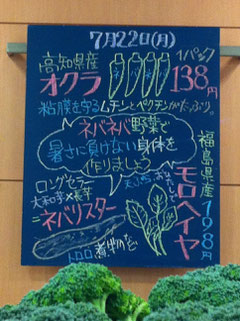 7月22日(月)
高知県産
オクラ
1パック
138円
粘膜を守るムチンとペクチンがたっぷり。
ネバネバ野菜で
暑さに負けない身体を
作りましょう
福島県産
モロヘイヤ
198円
ロングセラー
大和芋×長芋
=ネバリスター
トロロ
煮物など